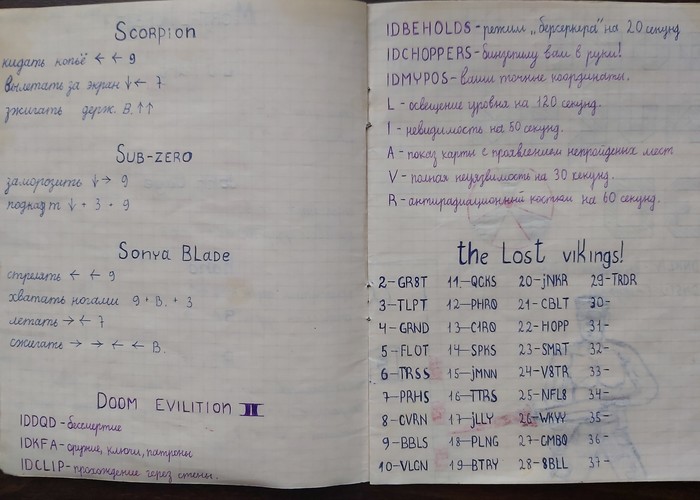 Scorpion
кидать копьё ← ← 9
вылетать за экран ↓ ← 7
зжигать держ. В. ↑↑
Sub-zero
заморозить ↓ → 9
подкат ↓ + 3 + 9
Sonya Blade
стрелять ← ← 9
хватать ногами 9 + В. + 3
летать → ← 7
сжигать → → ← ← В.
Doom Evilition II
IDDQD - бессмертие
IDKFA - оружие, ключи, патроны
IDCLIP - прохождение через стены.
IDBEHOLDS - режим „берсеркера" на 20 секунд
IDCHOPPERS - бинзопилу вам в руки!
IDMYPOS - ваши точные координаты.
L - освещение уровна на 120 секунд.
I - невидимость на 50 секунд.
A - показ карты с проявлением непройденых мест
V - полная неуязвимость на 30 секунд.
R - антирадиационный костюм на 60 секунд.
the Lost vikings!
2-GR8T 11.-QCKS 20-jNKR 29-TRDR
3-TLPT 12-PHRO 21-CBLT 30-
4-GRND 13-C1RO 22-HOPP 31-
5-FLOT 14-SPKS 23-SMRT 32-
6-TRSS 15-jMNN 24-V8TR 33-
7-PRHS 16-TTRS 25-NFL8 34-
8-CVRN 17-jLLY 26-WKYY 35-
9-BBLS 18-PLNG 27-CMBO 36-
10-VLCN 19-BTRY 28-8BLL 37-